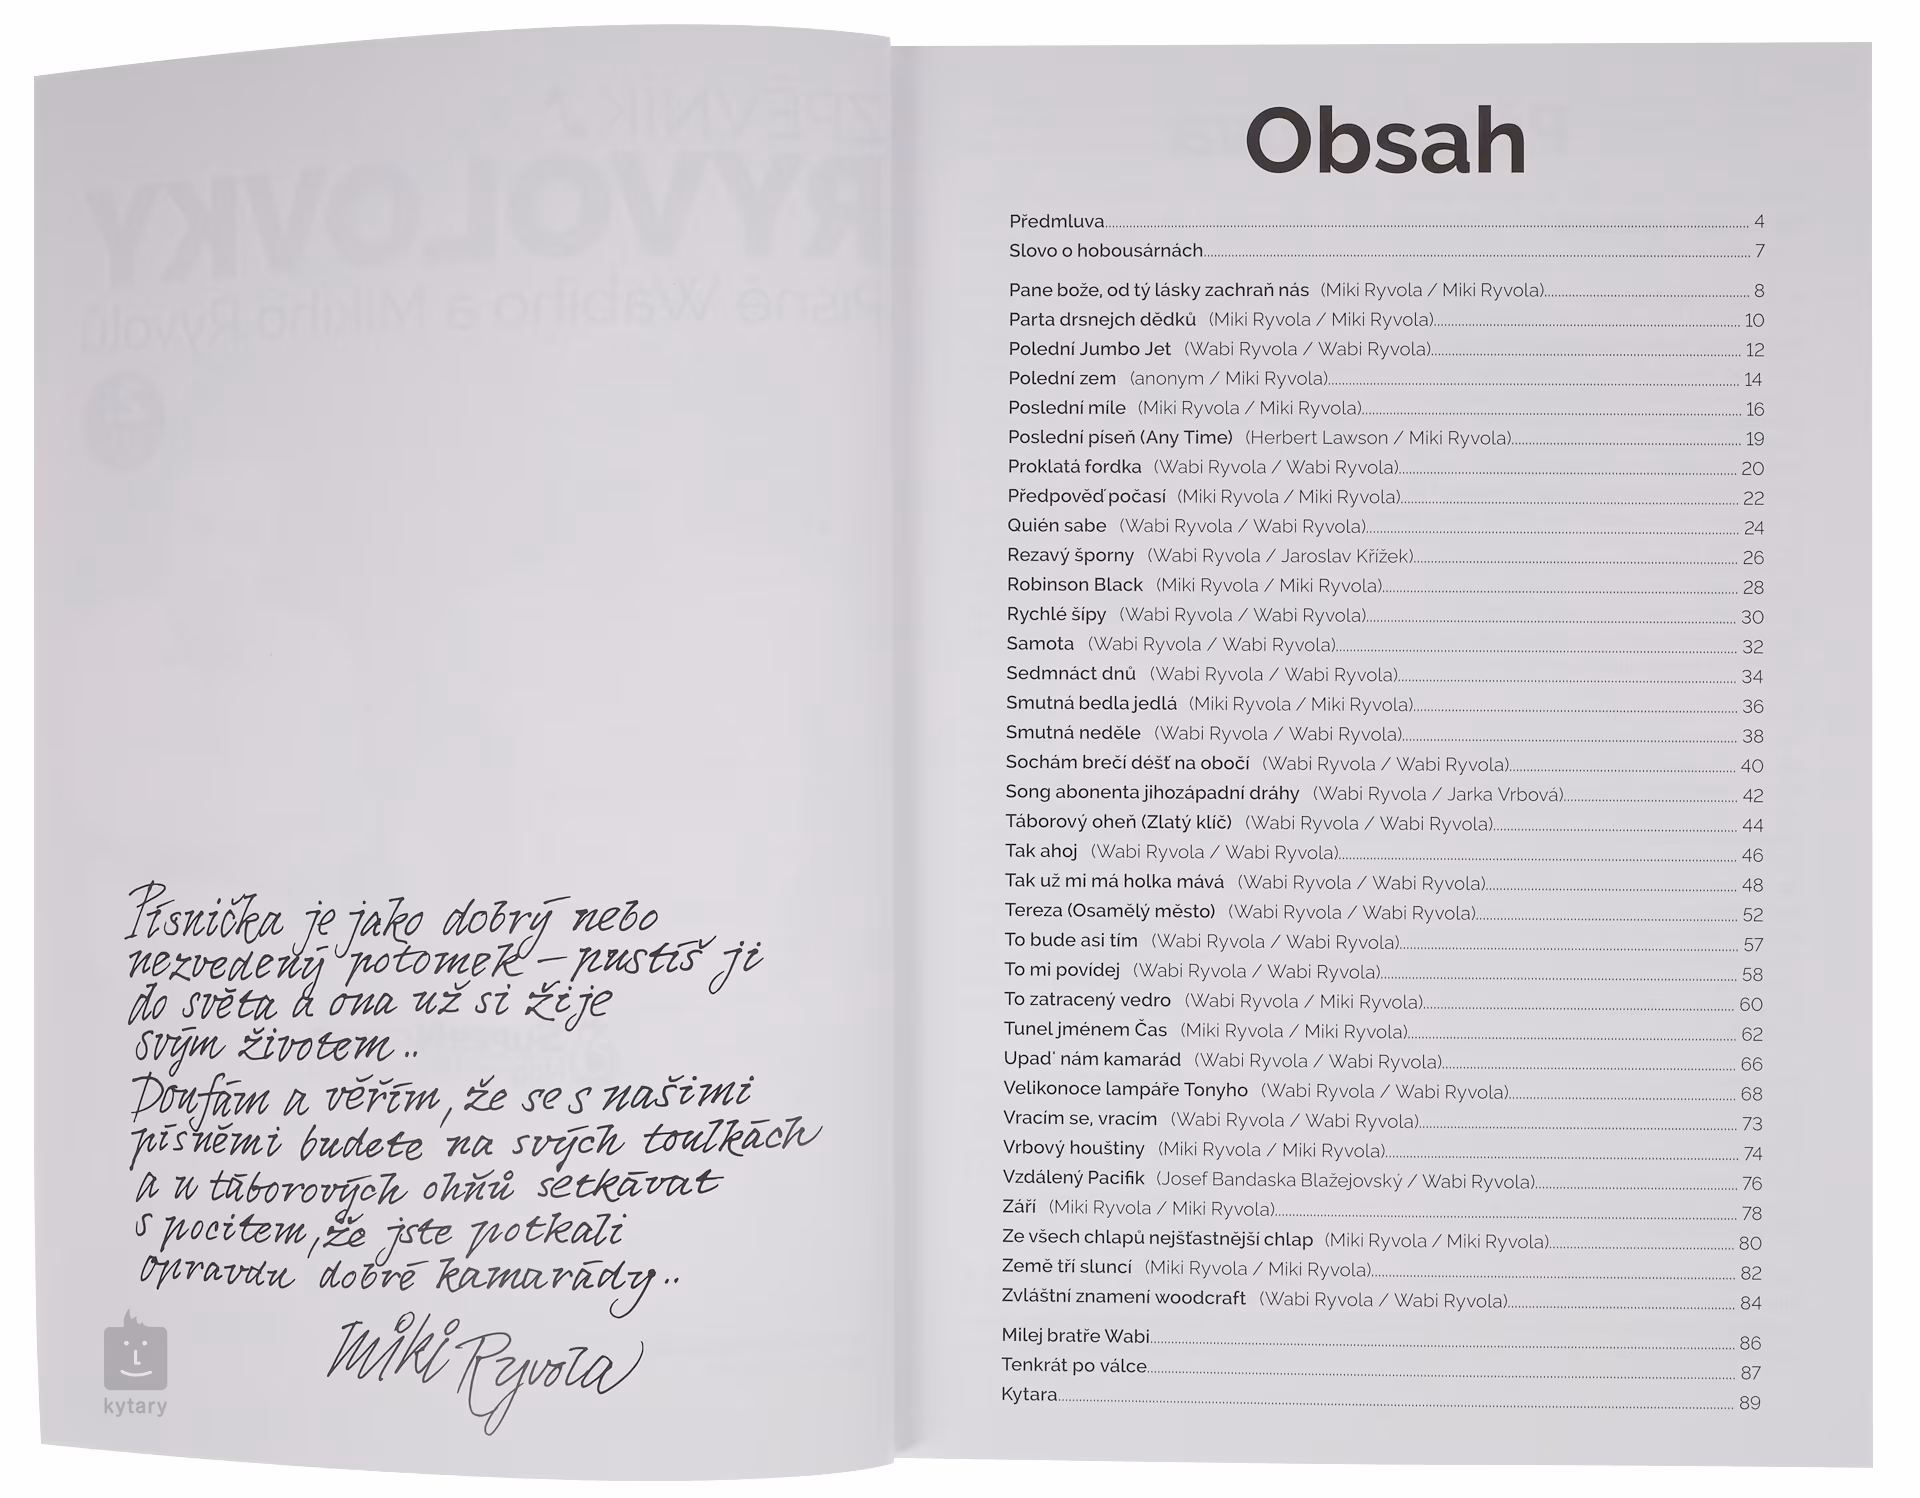 Písnička je jako dobrý nebo
nezvedený potomek – pustíš ji
do světa a ona už si žije
svým životem..
Doufám a věřím, že se s našimi
písněmi budete na svých toulkách
a u táborových ohňů setkávat
s pocitem, že jste potkali
opravdu dobré kamarády..
Miki Ryvola
kytary
Obsah
Předmluva 4
Slovo o hobousárnách 7
Pane bože, od tý lásky zachraň nás (Miki Ryvola / Miki Ryvola) 8
Parta drsnejch dědků (Miki Ryvola / Miki Ryvola) 10
Polední Jumbo Jet (Wabi Ryvola / Wabi Ryvola) 12
Polední zem (anonym / Miki Ryvola) 14
Poslední míle (Miki Ryvola / Miki Ryvola) 16
Poslední píseň (Any Time) (Herbert Lawson / Miki Ryvola) 19
Proklatá fordka (Wabi Ryvola / Wabi Ryvola) 20
Předpověď počasí (Miki Ryvola / Miki Ryvola) 22
Quién sabe (Wabi Ryvola / Wabi Ryvola) 24
Rezavý šporny (Wabi Ryvola / Jaroslav Křížek) 26
Robinson Black (Miki Ryvola / Miki Ryvola) 28
Rychlé šípy (Wabi Ryvola / Wabi Ryvola) 30
Samota (Wabi Ryvola / Wabi Ryvola) 32
Sedmnáct dnů (Wabi Ryvola / Wabi Ryvola) 34
Smutná bedla jedlá (Miki Ryvola / Miki Ryvola) 36
Smutná neděle (Wabi Ryvola / Wabi Ryvola) 38
Sochám brečí déšť na obočí (Wabi Ryvola / Wabi Ryvola) 40
Song abonenta jihozápadní dráhy (Wabi Ryvola / Jarka Vrbová) 42
Táborový oheň (Zlatý klíč) (Wabi Ryvola / Wabi Ryvola) 44
Tak ahoj (Wabi Ryvola / Wabi Ryvola) 46
Tak už mi má holka mává (Wabi Ryvola / Wabi Ryvola) 48
Tereza (Osamělý město) (Wabi Ryvola / Wabi Ryvola) 52
To bude asi tím (Wabi Ryvola / Wabi Ryvola) 57
To mi povídej (Wabi Ryvola / Wabi Ryvola) 58
To zatracený vedro (Wabi Ryvola / Miki Ryvola) 60
Tunel jménem Čas (Miki Ryvola / Miki Ryvola) 62
Upad' nám kamarád (Wabi Ryvola / Wabi Ryvola) 66
Velikonoce lampáře Tonyho (Wabi Ryvola / Wabi Ryvola) 68
Vracím se, vracím (Wabi Ryvola / Wabi Ryvola) 73
Vrbový houštiny (Miki Ryvola / Miki Ryvola) 74
Vzdálený Pacifik (Josef Bandaska Blažejovský / Wabi Ryvola) 76
Září (Miki Ryvola / Miki Ryvola) 78
Ze všech chlapů nejšťastnější chlap (Miki Ryvola / Miki Ryvola) 80
Země tří sluncí (Miki Ryvola / Miki Ryvola) 82
Zvláštní znamení woodcraft (Wabi Ryvola / Wabi Ryvola) 84
Milej bratře Wabi 86
Tenkrát po válce 87
Kytara 89